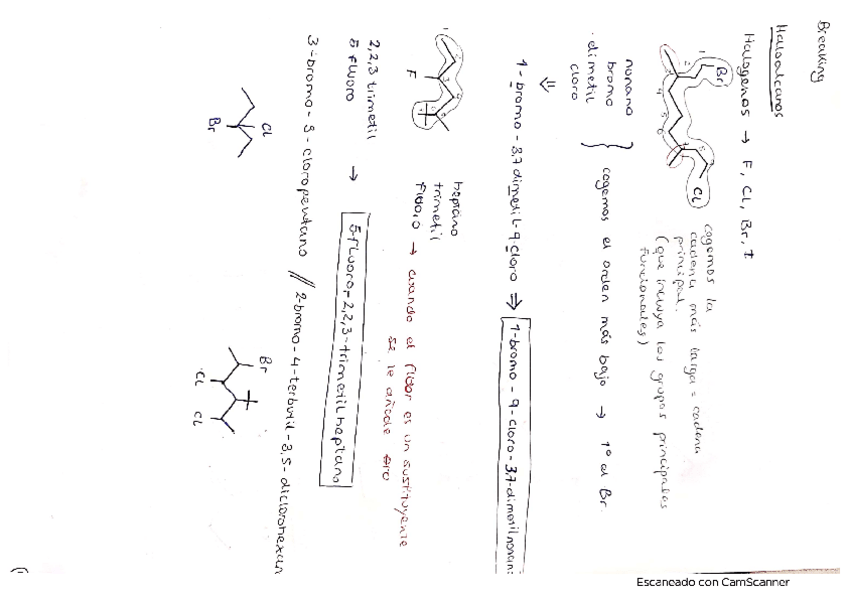 Breaking
Haloalcanos
Halogenos → F, Cl, Br, I
1
Br
2
3
4
5
6
7
8
9
Cl
cogemos la
cadena más larga = cadena
principal.
(que incluya los grupos principales
funcionales)
nonano
bromo
·dimetil
cloro
} cogemos el orden más bajo → 1º al Br.
⇓
1-bromo-3,7 dimetil-9 cloro ⇒ 1-bromo-9-cloro-3,7-dimetilnonano
F
heptano
trimetil
fluoro → cuando el flúor es un sustituyente
se le añade oro
2,2,3 trimetil
5 fluoro → 5-fluoro-2,2,3-trimetilheptano
3-bromo-3-cloropentano // 2-bromo-4-terbutil-3,5-diclorohexan
Cl
Br
Br
Cl
Cl
Escaneado con CamScanner